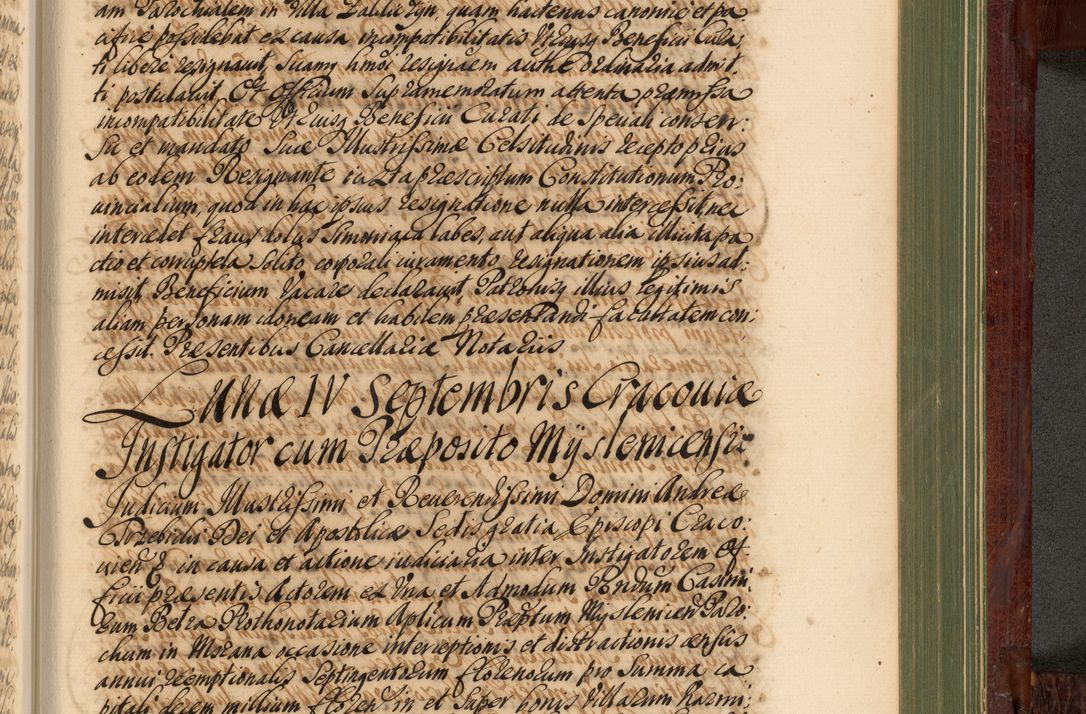 am Parochialem in Villa Zabierzyn, quam hactenus canonice et pa
cifice possidebat ex causa incompatibilitatis Utriusq Beneficii Cura
ti libere resignauit, Suamq hmoi resignaem authe Ordinaria admit
ti postulauit. Et Officium Supramemoratum attenta praemissa
incompatibilitate Utriusq Beneficii Curati de Speciali consen:
su et mandato Suae Illustrissimae Celsitudinis recepto prius
ab eodem Resignante iuxta praescriptum Constitutionum Pro:
uincialium, quod in hac ipsius resignatione nulla intercessit nec
intercedet fraus, dolus Simoniaca labes, aut aliqua alia illicita pa
ctio et corruptela Solito corporali iuramento resignationem ipsius ad:
misit, Beneficium Vacare declarauit, Patronisq illius legitimis
aliam personam idoneam et habilem praesentandi facultatem con:
cessit. Praesentibus Cancellariae Notariis
Lunae IV Septembris Cracouiae
Instigator cum Praeposito Myslenicensi
Judicium Illustrissimi et Reuerendissimi Domini Andreae
Trzebicki Dei et Apostolicae Sedis gratia Episcopi Craco:
uien in causa et actione iudiciaria inter Instigatorem Of
ficii praesentis Actorem ex Una et Admodum Rndum Casimi
rum Betza Prothonotarium Aplicum Praeptum Myslenicen Paro
chum in Mozana occasione interceptionis et distractionis census
annui reemptionalis Septingentorum florenorum pro Summa ca
pitali decem millium floren in et Super bonis Villarum